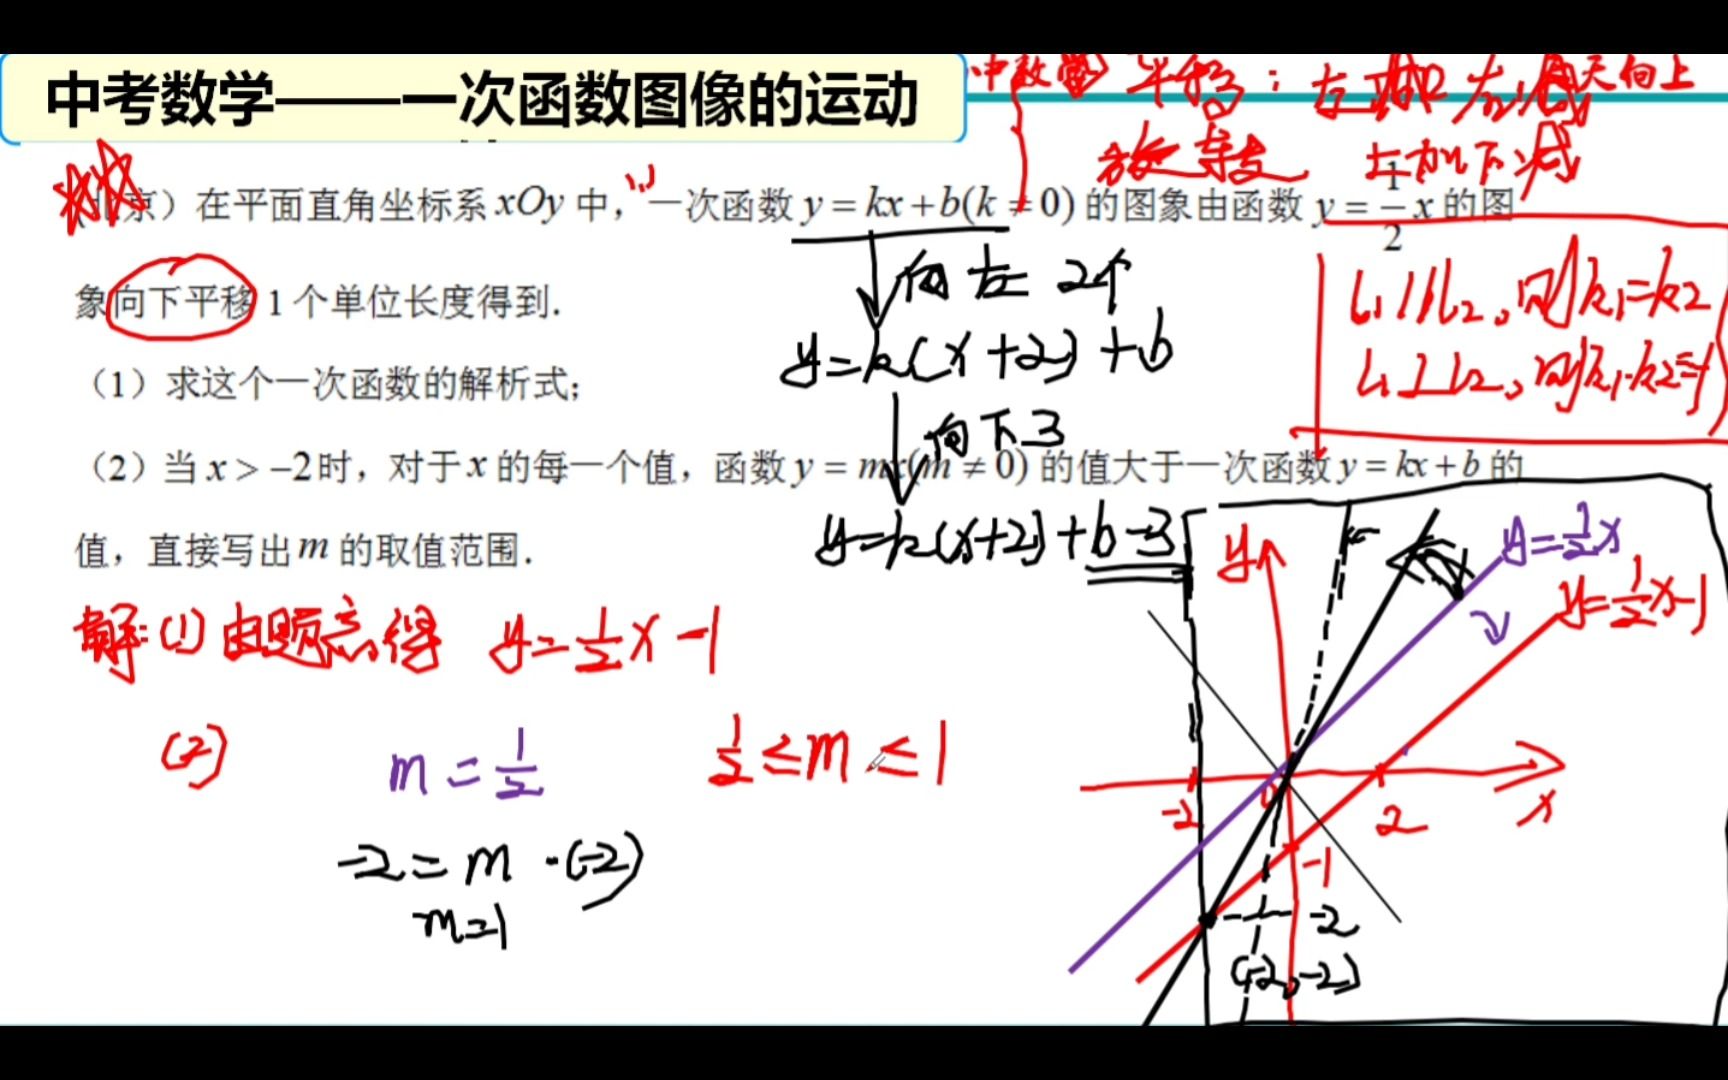 中考数学——一次函数图像的运动
平移：左加右减
上加下减
京）在平面直角坐标系 xOy 中，一次函数 y = kx + b(k ≠ 0) 的图象由函数 y = 1/2 x 的图
象向下平移 1 个单位长度得到．
（1）求这个一次函数的解析式；
（2）当 x > −2 时，对于 x 的每一个值，函数 y = mx(m ≠ 0) 的值大于一次函数 y = kx + b 的
值，直接写出 m 的取值范围．
向左 2个
y=k(x+2)+b
向下3
y=k(x+2)+b-3
L₁//L₂，则k₁=k₂
L₁⊥L₂，则k₁·k₂=-1
解：(1) 由题意得 y=1/2x-1
(2) m=1/2 1/2≤m≤1
-2=m·(-2)
m=1
y
y=1/2x
y=1/2x-1
-2
0
2
x
-1
-2
(-2,-2)